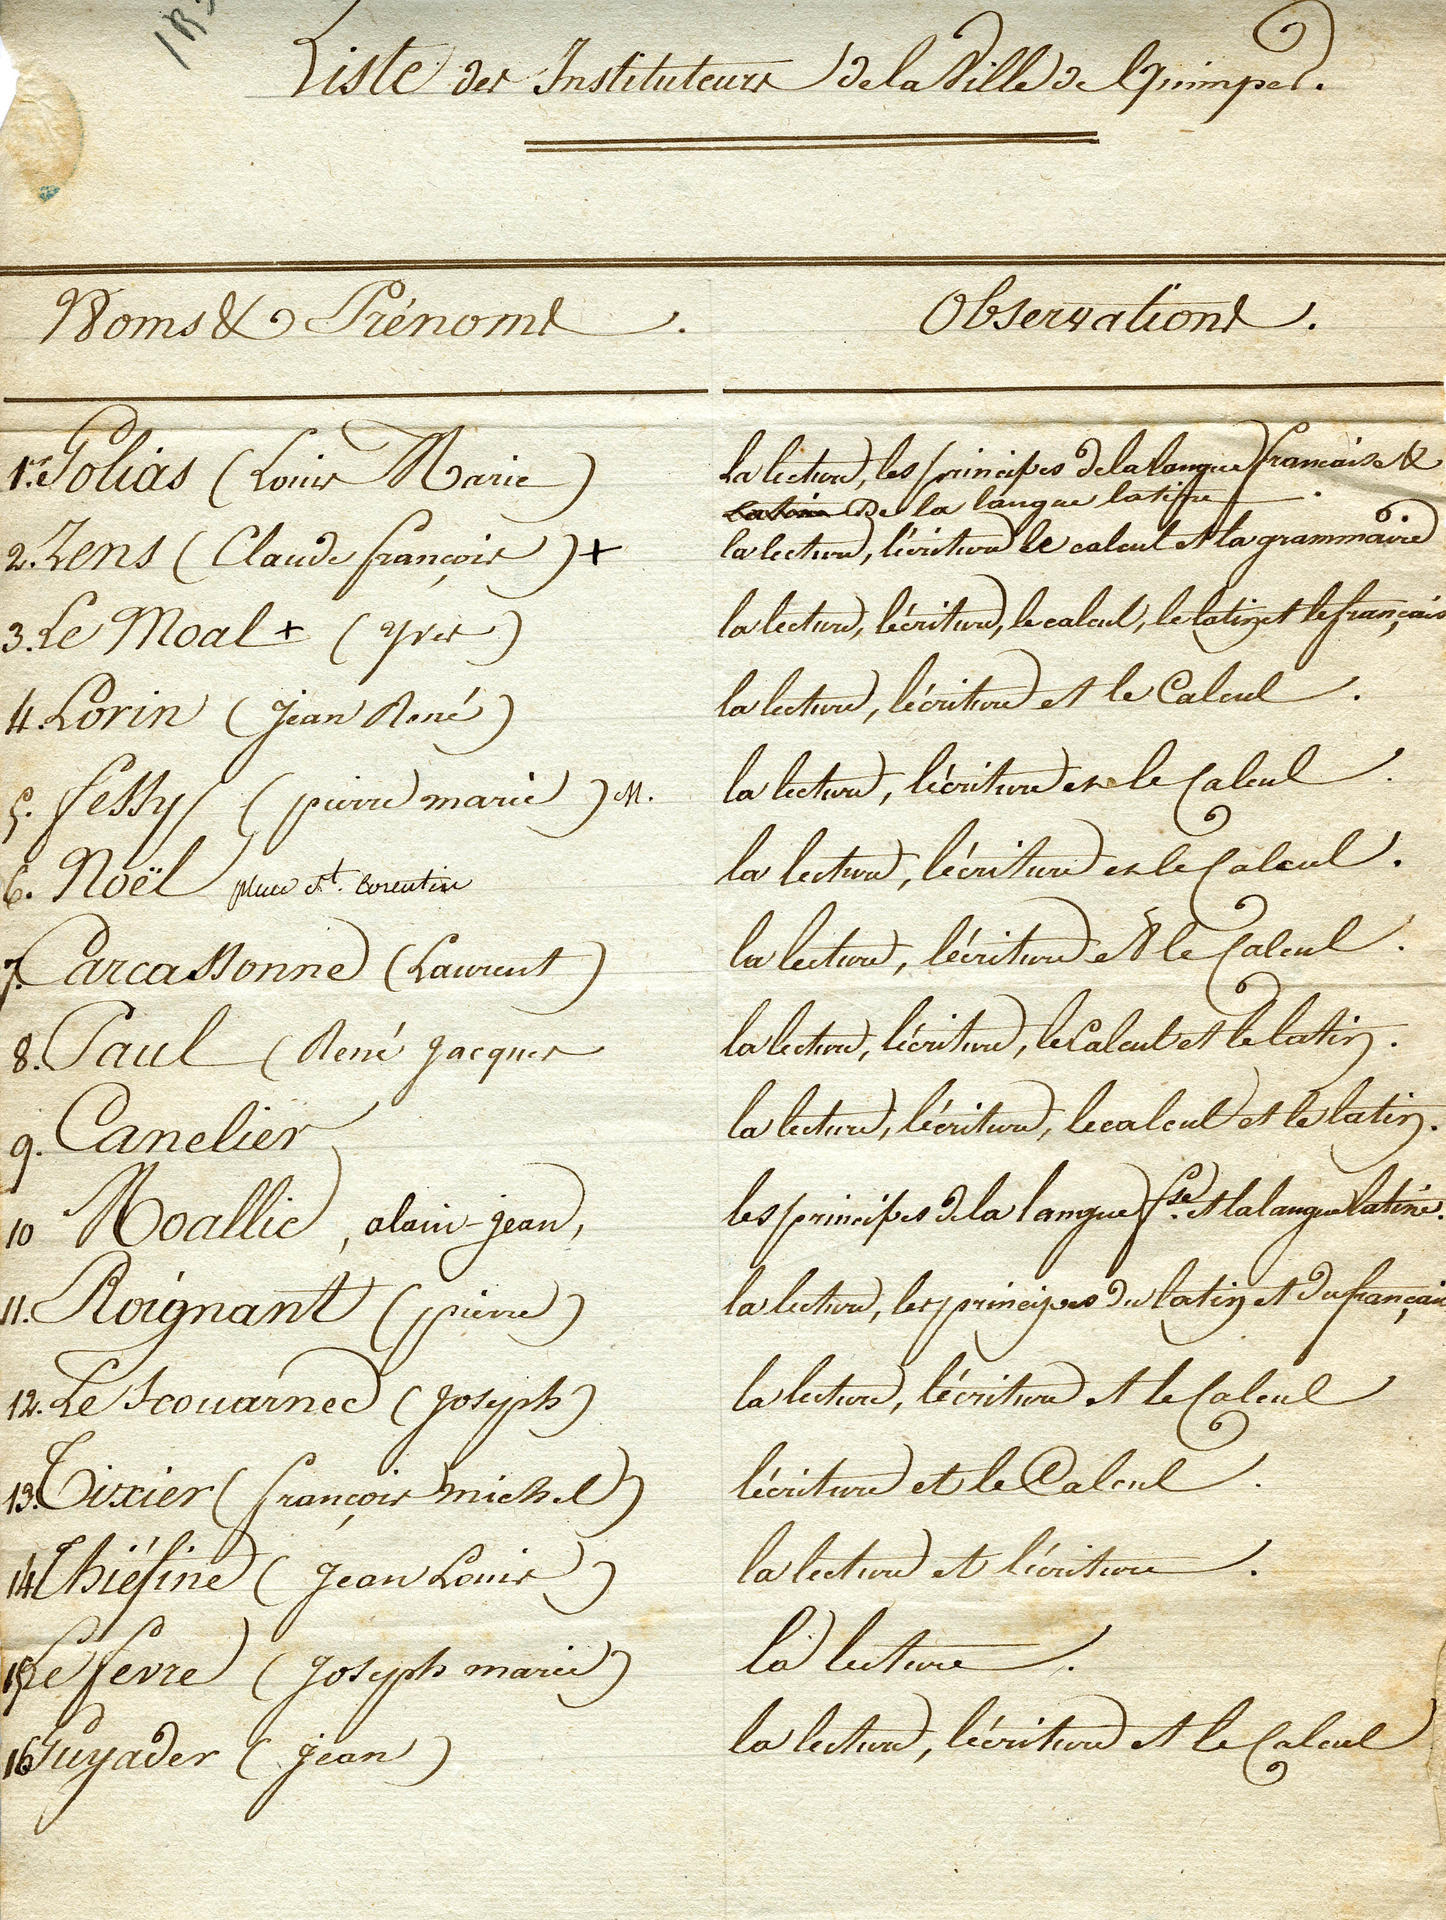 1R5
Liste des Instituteurs de la Ville de Quimper.
Noms & Prénoms. Observations.
1er. Golias (Louis Marie) la lecture, les principes de la langue francaise &
de la langue latine.
2. Lens (Claude françois) + la lecture, l'écriture le calcul et la grammaire
3. Le Moal + (yves) la lecture, l'écriture, le calcul, le latin et le français
4. Lorin (jean René) la lecture, l'écriture et le Calcul.
5. fessy (pierre marie) M. la lecture, l'écriture et le Calcul.
6. Noël place St. Corentin la lecture, l'écriture et le Calcul.
7. Carcassonne (Laurent) la lecture, l'écriture et le Calcul.
8. Paul (René jacques la lecture, l'écriture, le Calcul et le latin.
9. Canelier la lecture, l'écriture, le calcul et le latin.
10 Moallic, alain-jean, les principes de la langue fse. et la langue latine.
11. Roignant (pierre) la lecture, les principes du latin et du français
12. Le Scouarnec (joseph) la lecture, l'écriture et le Calcul
13. Tixier (françois michel) l'écriture et le Calcul.
14 Thiéfine (jean Louis) la lecture et l'écriture.
15 Le fevre (joseph marie) la lecture.
16 Guyader (jean) la lecture, l'écriture et le Calcul